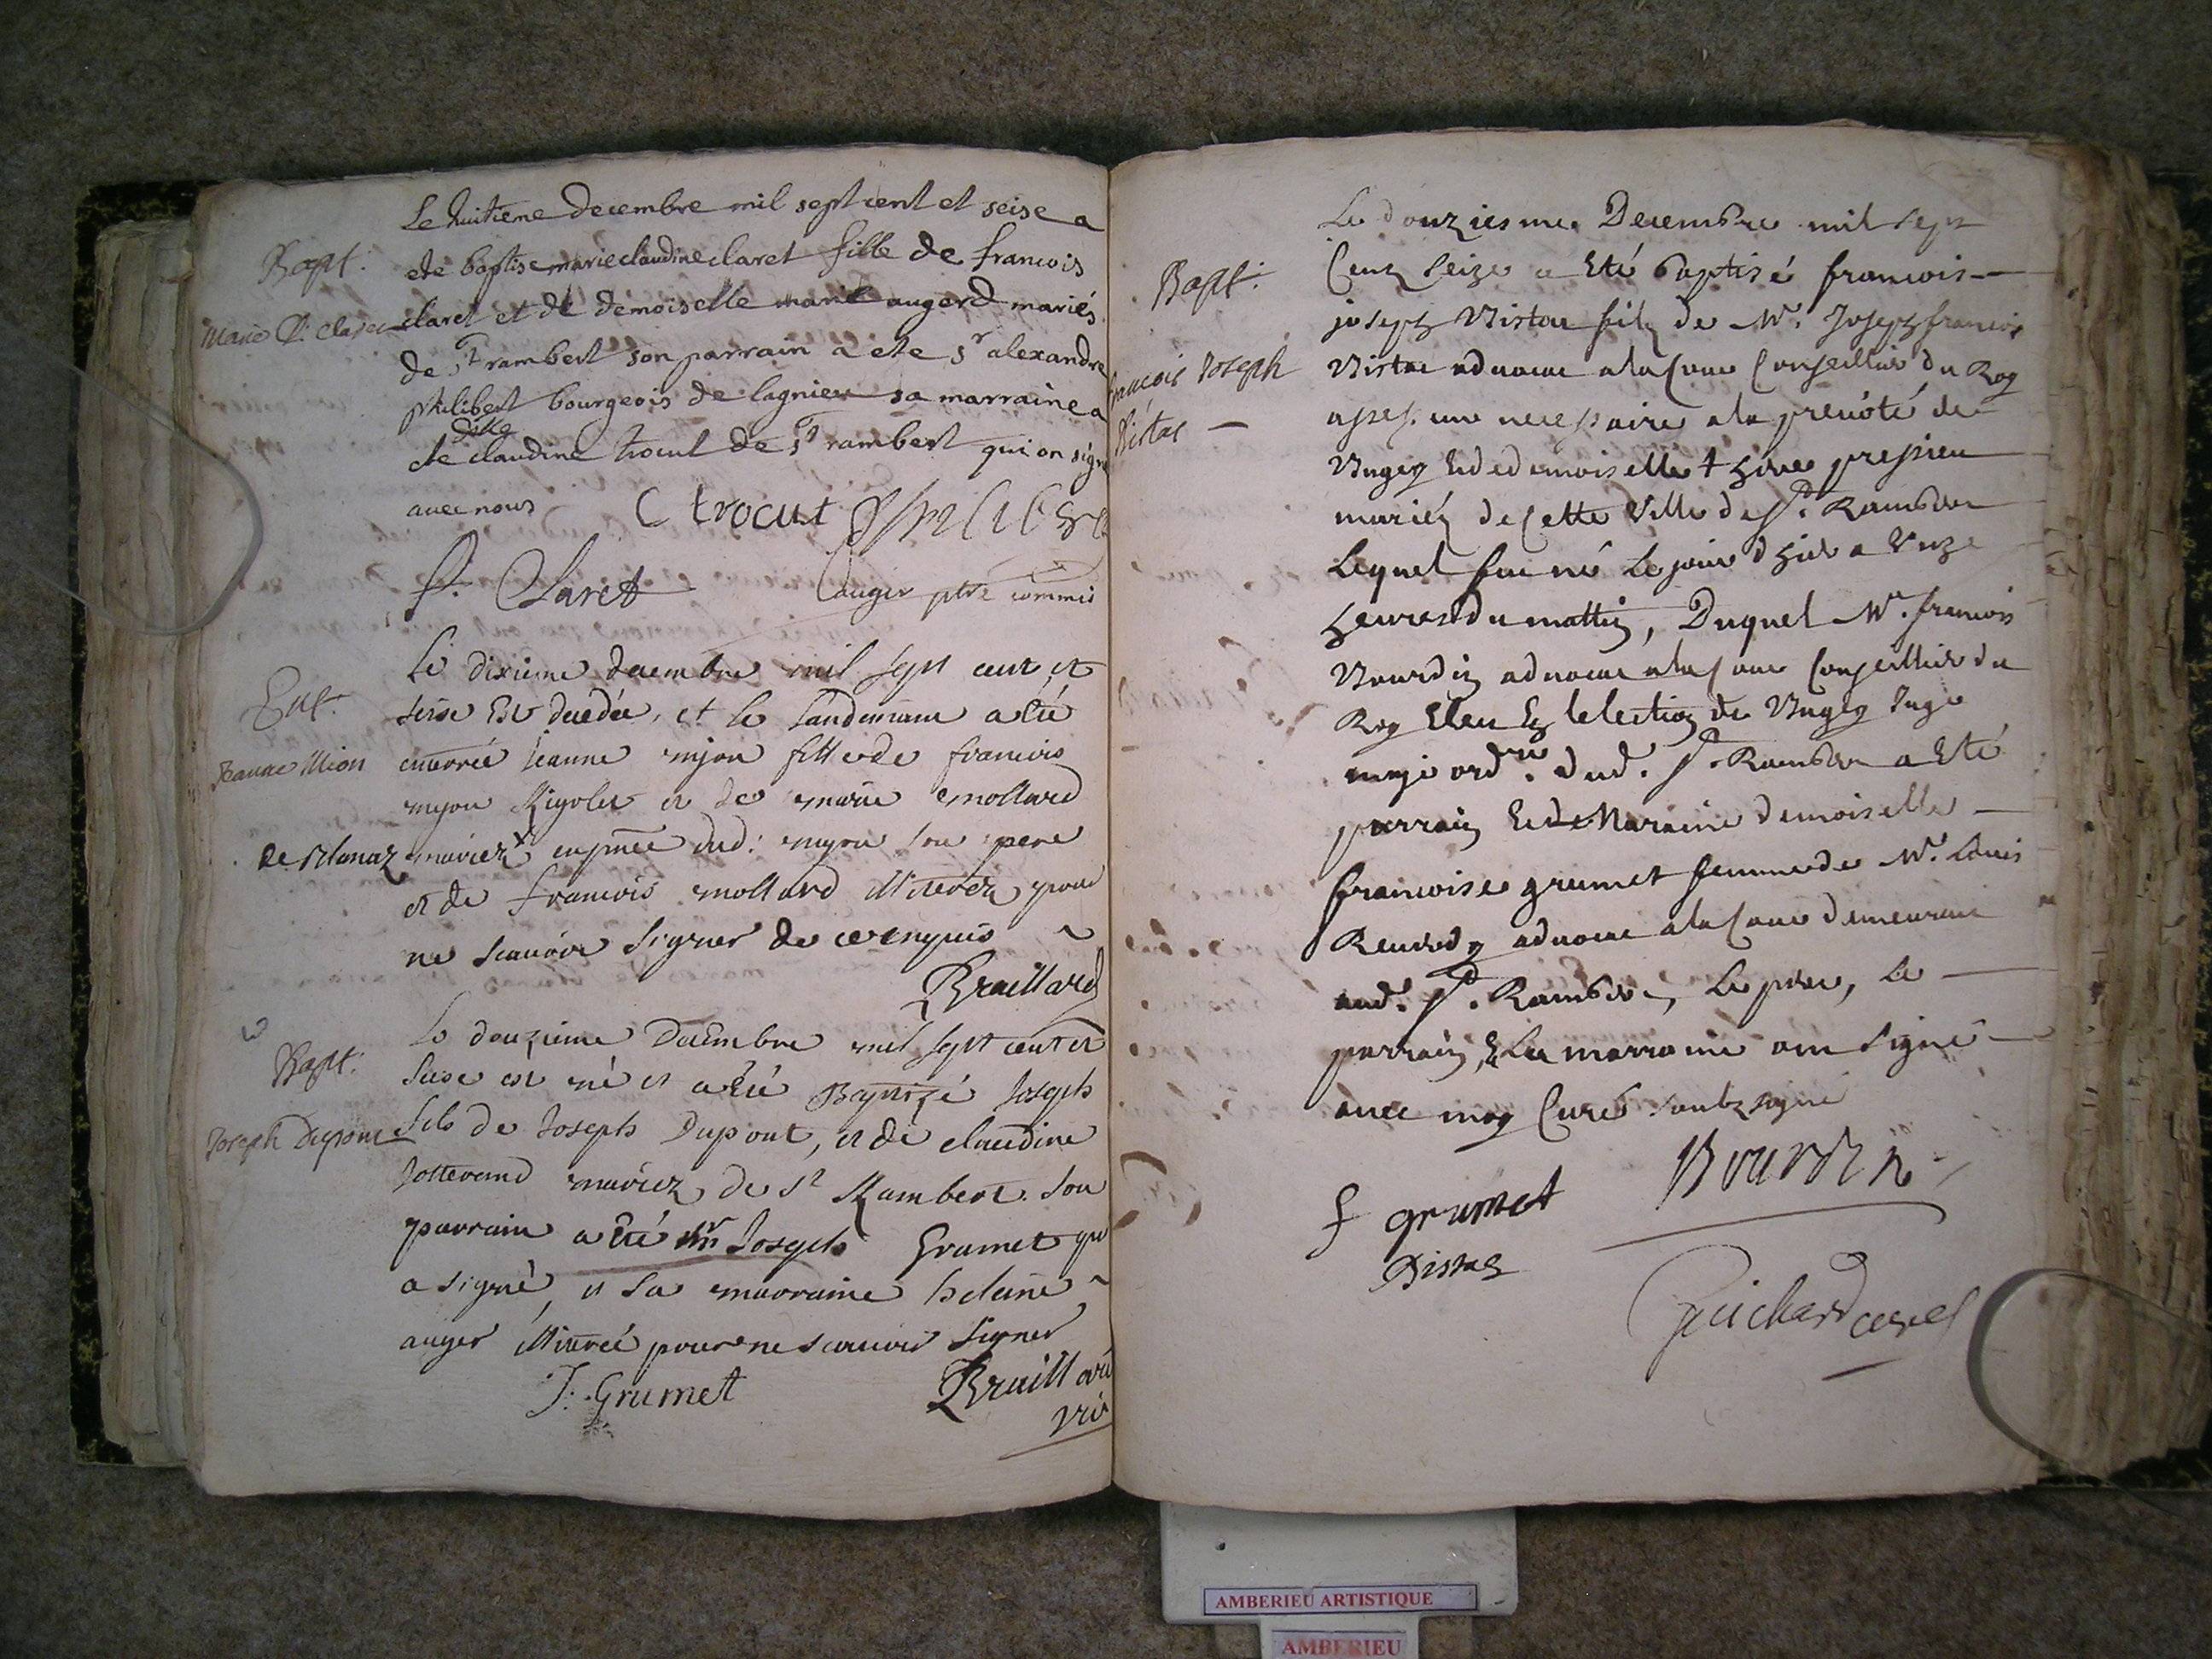 Le huitieme decembre mil sept cent et seise a
Bapt.
ete baptise marie claudine claret fille de francois
Marie Cl. Claret
claret et de demoiselle marie augerd mariés
de st rambert son parrain a ete sr alexandre
philibert bourgeois de lagnieu sa marraine a
dlle
ete claudine trocut de st rambert qui on signé
avec nous
C trocut philibert
f. Claret
auger ptre commis
Le dixieme decembre mil sept cent et
Ent.
seise Est decedée, et le landemain a été
Jeanne Mion
enterrée Jeanne mjon fille de francois
mjon Rigolet et de marie mollard
de blanaz
mariez en pnce dud: mjon son pere
et de francois mollard illiterez pour
ne scauoir signer de ce enquis
Braillard
Le douzieme decembre mil sept cent et
Bapt:
seise est né et a été Baptizé Joseph
Joseph Dupont
fils de Joseph Dupont, et de claudine
Jotterand mariez de st Rambert. son
parrain a été mr Joseph Grumet qui
a signé, et sa marraine helaine
auger illiterée pour ne scauoir signer
J. Grumet
Braillard
vic
Le douziesme Decembre mil sept
Bapt.
Cent seize a Eté baptisé francois
joseph Vistac filz de Mr. Joseph francois
francois Joseph
Vistac
Vistac aduocat a la Cour Conseillier du Roy
en la preuôté de
Bugey et de demoiselle pressieu
mariéz de Cette Ville de St. Rambert
Lequel fut né Le jour d'hier a unze
heures du mattin, Duquel Mr. francois
Bourdin aduocat a la Cour Conseillier du
Roy Eleu En lelection de Bugey Juge
maje ordre. dud. St. Rambert a Eté
parrain Et de Maraine demoiselle
francoise grumet femme de Mr. Louis
aduocat a la Cour demeurant
aud. St. Rambert, Le pere, Le
parrain, & La marraine ont signé
auec moy Curé soubzsigné
Bourdin
f grumet
Vistac
Guichard curé
AMBERIEU ARTISTIQUE
AMBERIEU